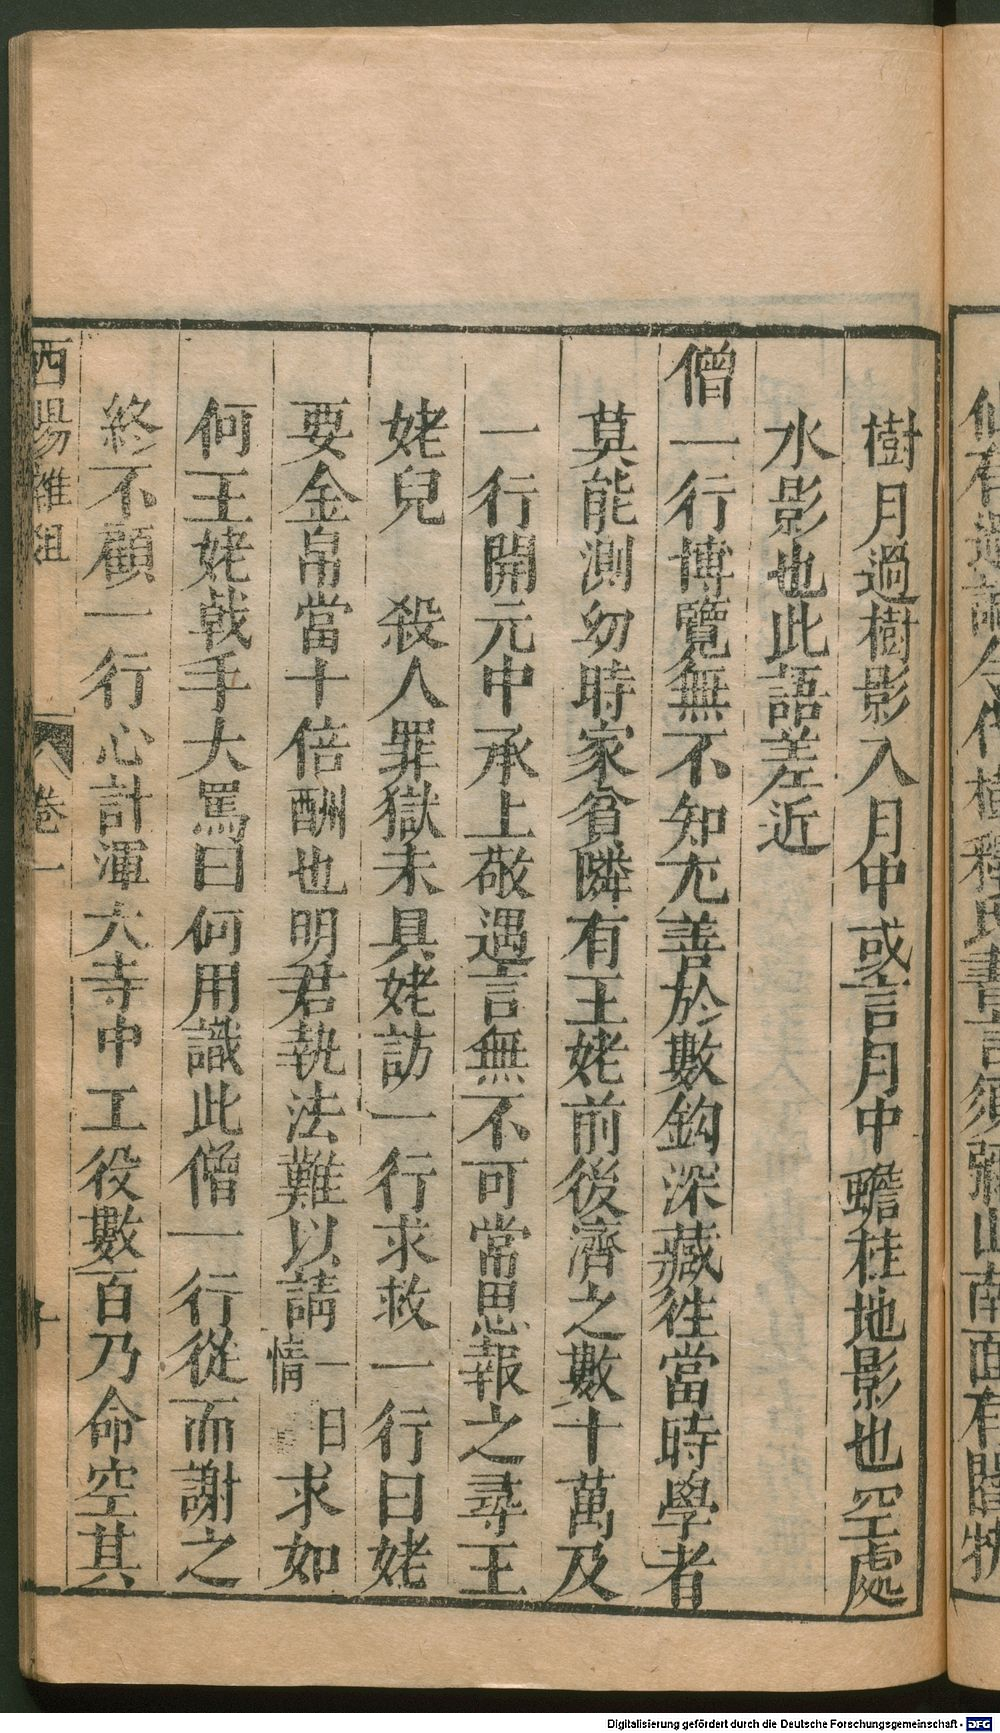 樹月過樹影入月中或言月中蟾桂地影也空處
水影也此語差近
僧一行博覽無不知尤善於數鈎深藏往當時學者
莫能測幼時家貧隣有王姥前後濟之數十萬及
一行開元中承上敬遇言無不可常思報之尋王
姥兒 殺人罪獄未具姥訪一行求救一行曰姥
要金帛當十倍酬也明君執法難以請一日情求如
何王姥戟手大罵曰何用識此僧一行從而謝之
終不顧一行心計渾天寺中工役數百乃命空其
酉陽雜俎 卷一 十
Digitalisierung gefördert durch die Deutsche Forschungsgemeinschaft - DFG